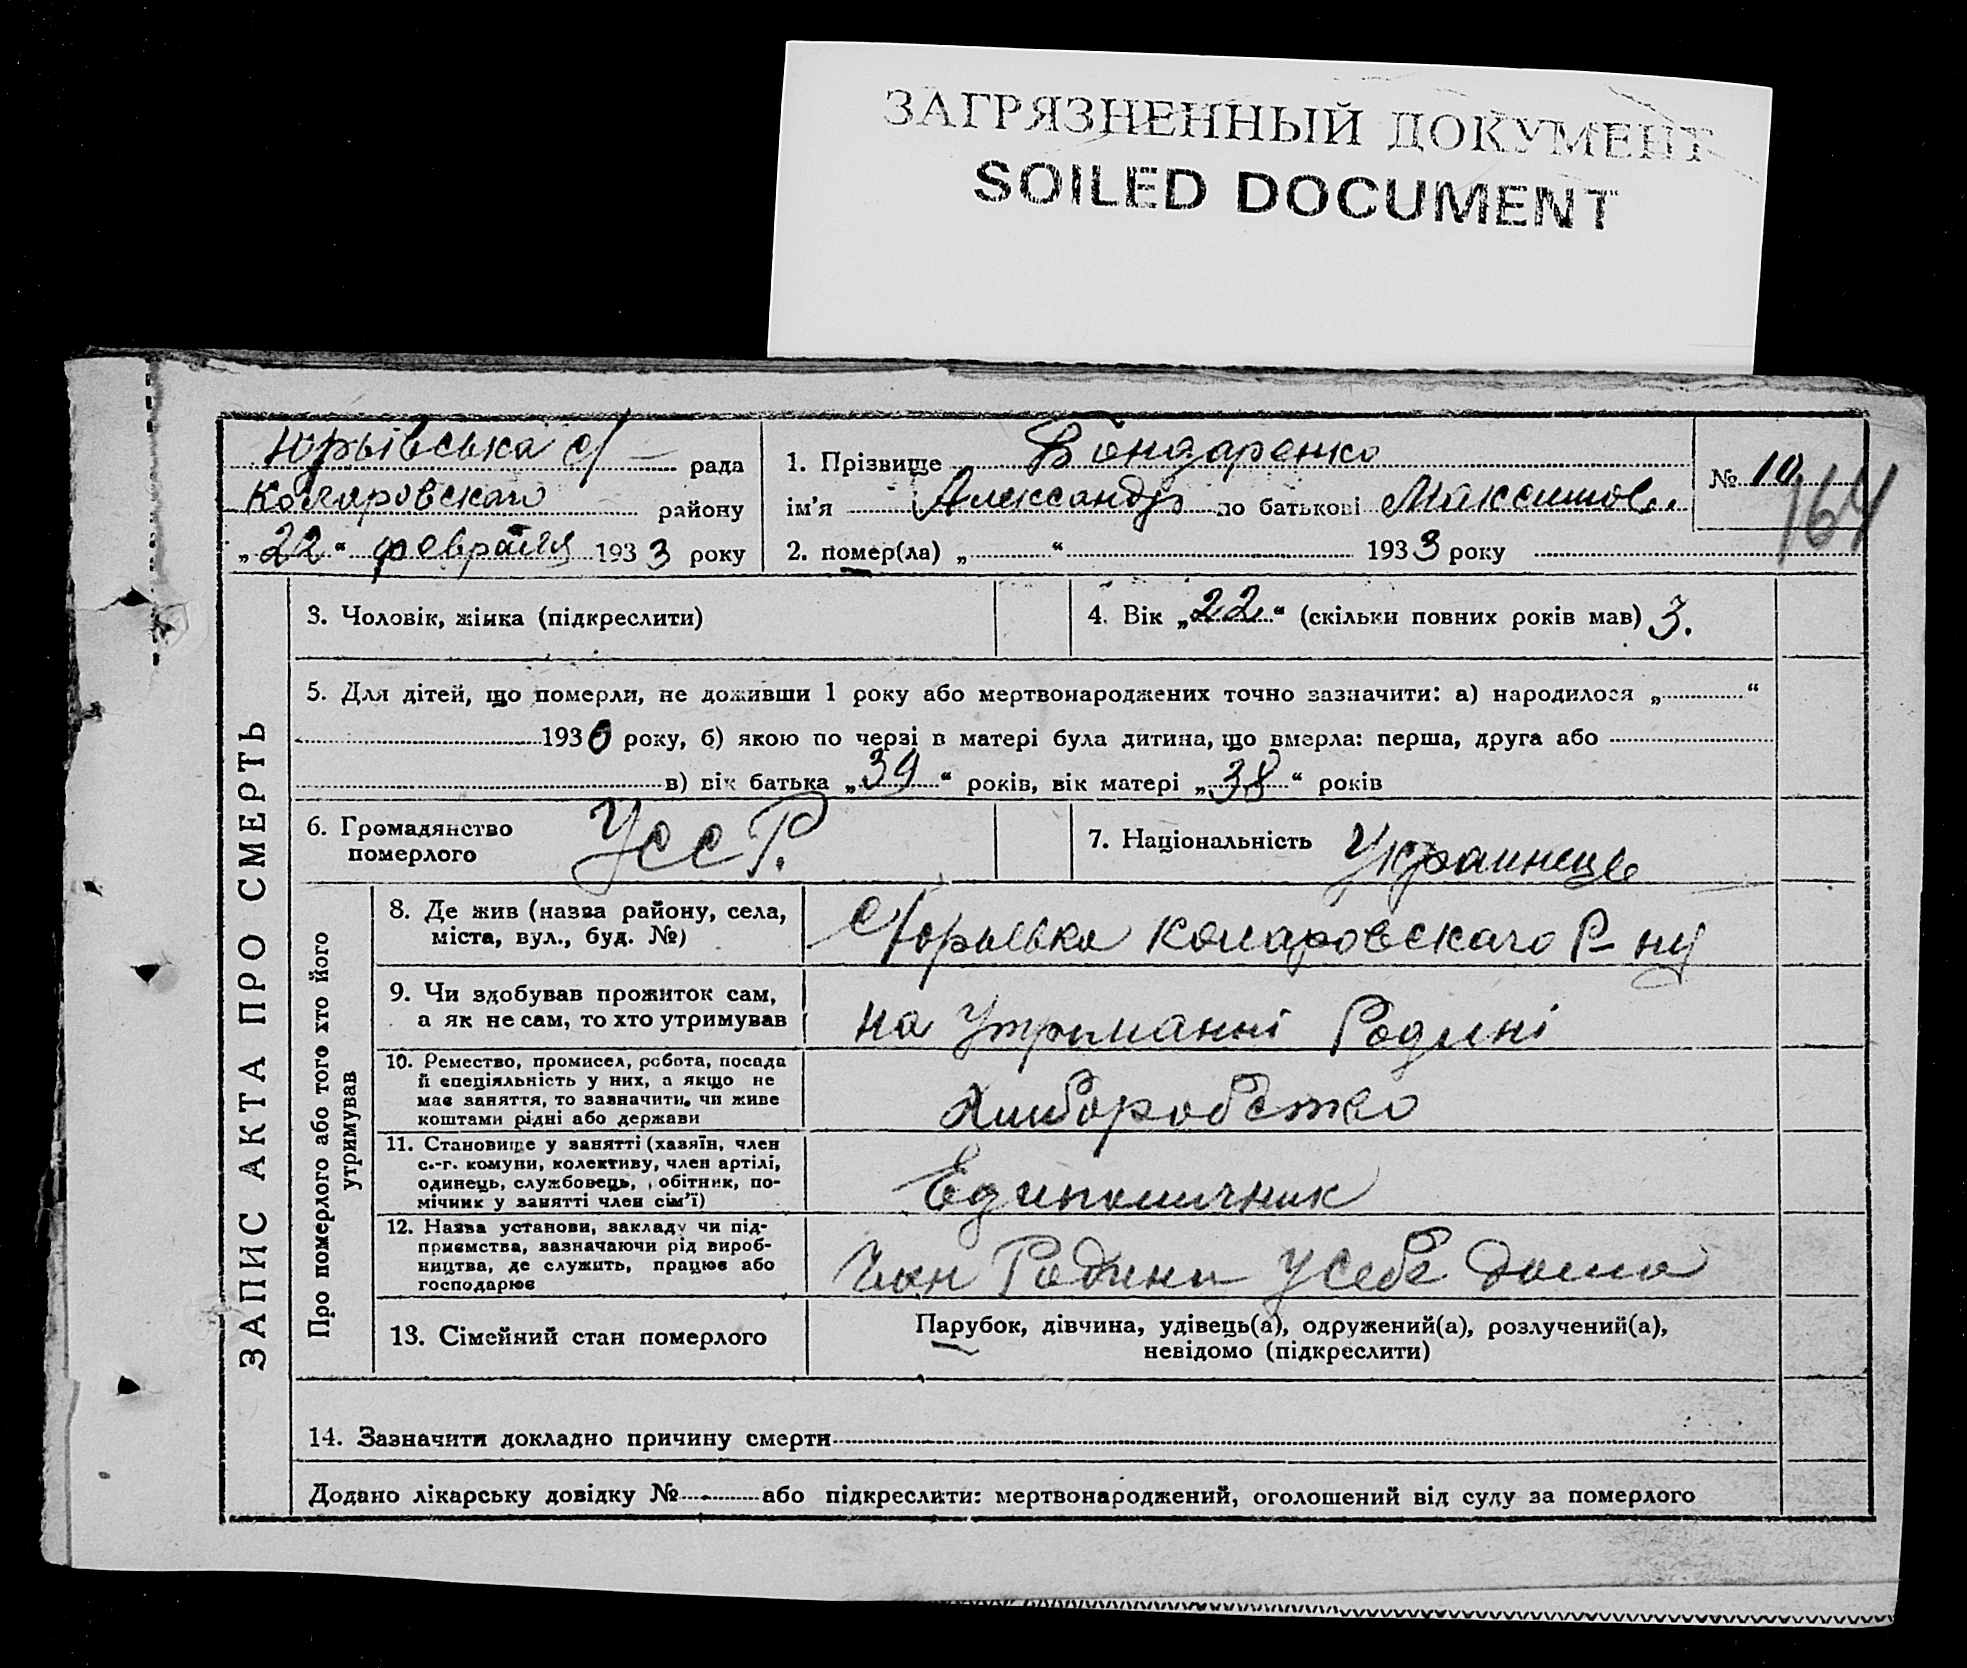 ЗАГРЯЗНЕННЫЙ ДОКУМЕНТ
SOILED DOCUMENT
Юрьівська с/ – рада
района
„22“ февраля 1933 року
1. Прізвище Бондаренко
ім'я Александр по батькові Максимов.
2. помер(ла) „ “ 1933 року
№ 10
164
ЗАПИС АКТА ПРО СМЕРТЬ
3. Чоловік, жінка (підкреслити)
4. Вік „22“ (скільки повних років мав) 3.
5. Для дітей, що померли, не доживши 1 року або мертвонароджених точно зазначити: а) народилося „ “
1930 року, б) якою по черзі в матері була дитина, що вмерла: перша, друга або
в) вік батька „39“ років, вік матері „38“ років
6. Громадянство
померлого
УССР.
7. Національність Украинець
Про померлого або того хто його
утримував
8. Де жив (назва району, села,
міста, вул., буд. №)
с/Юрьевка комаровскаго Р–ну
9. Чи здобував прожиток сам,
а як не сам, то хто утримував
на Утриманні Родині
10. Ремество, промисел, робота, посада
й спеціяльність у них, а якщо не
має заняття, то зазначити, чи живе
коштами рідні або держави
11. Становище у занятті (хазяїн, член
с.-г. комуни, колективу, член артілі,
одинець, службовець, обітник, по-
мічник у занятті член сім'ї)
Единоличник
12. Назва установи, закладу чи під-
приємства, зазначаючи рід вироб-
ництва, де служить, працює або
господарює
Член Родини У себе дома
13. Сімейний стан померлого
Парубок, дівчина, удівець(а), одружений(а), розлучений(а),
невідомо (підкреслити)
14. Зазначити докладно причину смерти
Додано лікарську довідку № або підкреслити: мертвонароджений, оголошений від суду за померлого